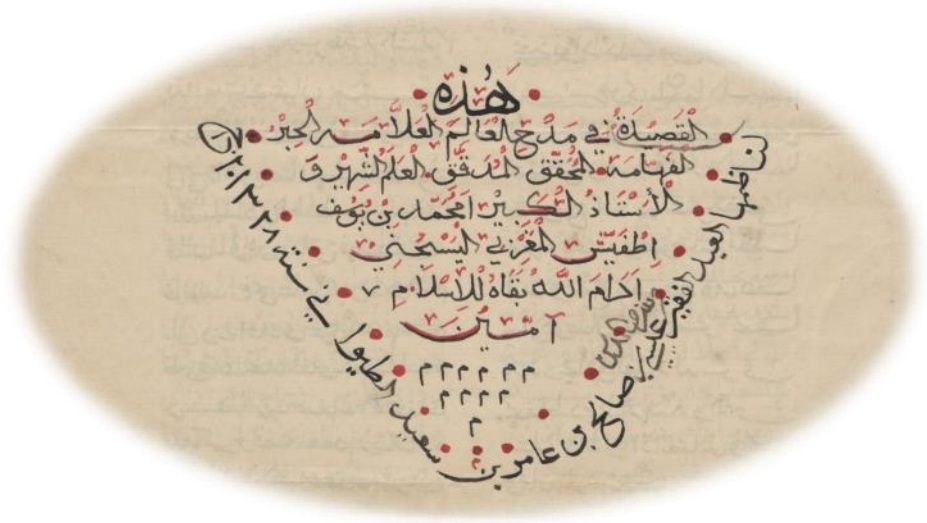 هٰذه
القصيدة في مدح العالم العلامه الحبر
الفهامة المحقق المدقق العلم الشهير و
الأستاذ الكبير امحمد بن يوسف
اطفيّش المغربي اليسجني
ادام الله بقاه للاسلام
آمين
م م م م م م
م م م م
م
لناظمها العبد الفقير عيسى بن صالح بن عامر بن سعيد الطيوا ني سنة ١٣٢٨